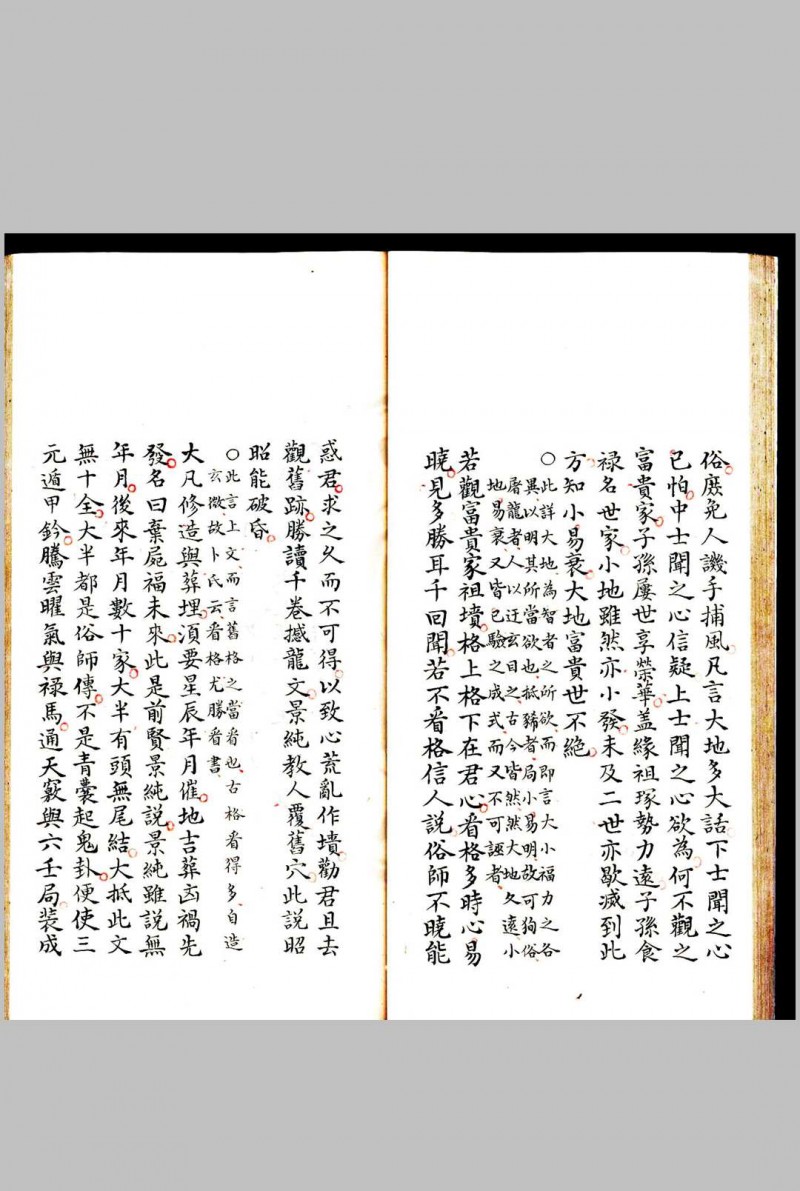 俗庶免人譏手捕風凡言大地多大話下士聞之心
已怕中士聞之心信疑上士聞之心欲為何不觀之
富貴家子孫屢世享榮華蓋緣祖塚勢力遠子孫食
禄名世家小地雖然亦小發未及二世亦歇滅到此
方知小易衰大地富貴世不絶
○此詳大地為智者之所欲而即言大小福力之各
異以明其所當欲也抵豨者局小易明故可狗俗
屠龍者人以迂玄目之古今皆然然大地久遠小
地易衰又皆已驗之成式而又不可誣者
若觀富貴家祖墳格上格下在君心看格多時心易
曉見多勝耳千回聞若不看格信人説俗師不曉能
惑君求之久而不可得以致心荒亂作墳勸君且去
觀舊跡勝讀千卷撼龍文景純教人覆舊穴此説昭
昭能破昏
○此言上文而言舊格之當看也古格看得多自造
玄微故卜氏云看格尤勝看書
大凡修造與葬埋須要星辰年月催地吉葬凶禍先
發名曰棄屍福未來此是前賢景純説景純雖説無
年月後來年月數十家大半有頭無尾結大抵此文
無十全大半都是俗師傳不是青囊起鬼卦便使三
元遁甲鈐騰雲曜氣與禄馬通天竅與六壬局裝成